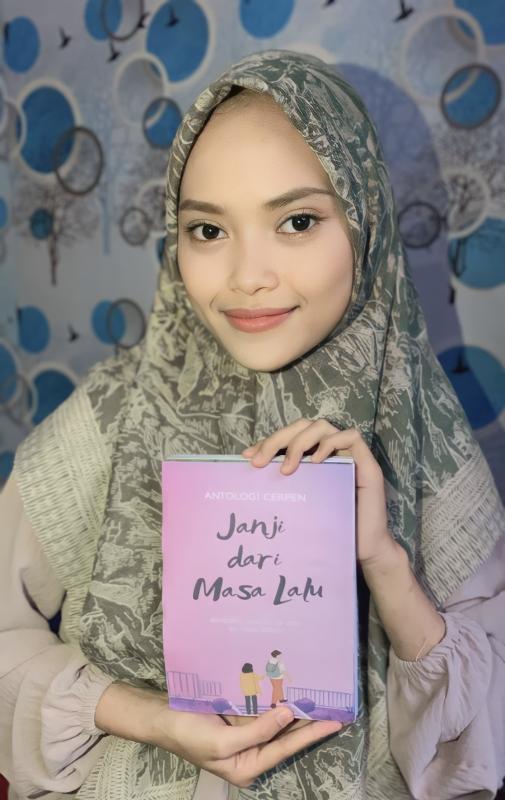 ANTOLOGI CERPEN
Janji
dari
Masa Lalu